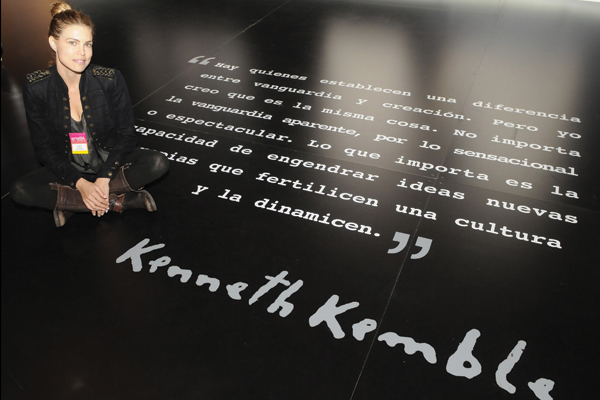 “Hay quienes establecen una diferencia
entre vanguardia y creación. Pero yo
creo que es la misma cosa. No importa
la vanguardia aparente, por lo sensacional
o espectacular. Lo que importa es la
capacidad de engendrar ideas nuevas
que fertilicen una cultura
y la dinamicen.”
Kenneth Kemble